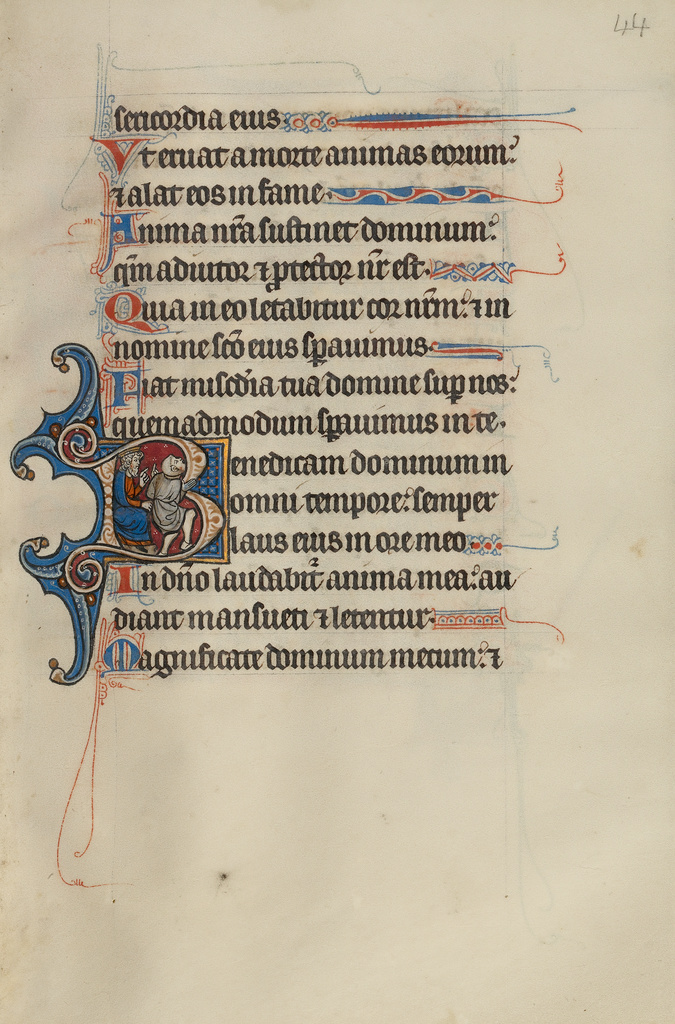 44
sericordia eius
Vt eruat a morte animas eorum:
⁊ alat eos in fame.
Anima nr̃a sustinet dominum:
qm̃ adiutor ⁊ ꝓtector nr̃ est.
Quia in eo letabitur cor nr̃m: ⁊ in
nomine sc̃o eius sꝑauimus.
Fiat mis̃cdia tua domine suꝑ nos:
quemadmodum sꝑauimus in te.
Benedicam dominum in
omni tempore: semper
laus eius in ore meo
In dño laudabit᷑ anima mea: au
diant mansueti ⁊ letentur.
Magnificate dominum mecum: ⁊